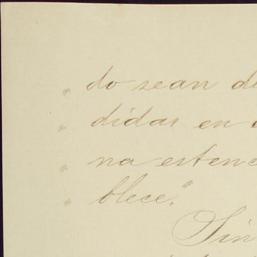 " do sean di
" didas en
" na estenc
" blece."
Sin